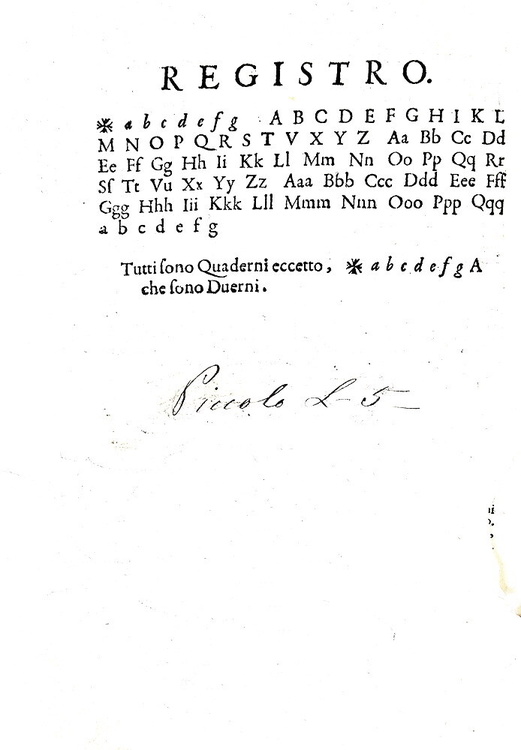 REGISTRO.
※ a b c d e f g A B C D E F G H I K L
M N O P Q R S T V X Y Z Aa Bb Cc Dd
Ee Ff Gg Hh Ii Kk Ll Mm Nn Oo Pp Qq Rr
Sſ Tt Vu Xx Yy Zz Aaa Bbb Ccc Ddd Eee Fff
Ggg Hhh Iii Kkk Lll Mmm Nnn Ooo Ppp Qqq
a b c d e f g
Tutti ſono Quaderni eccetto, ※ a b c d e f g A
che ſono Duerni.
Piccolo L-5-